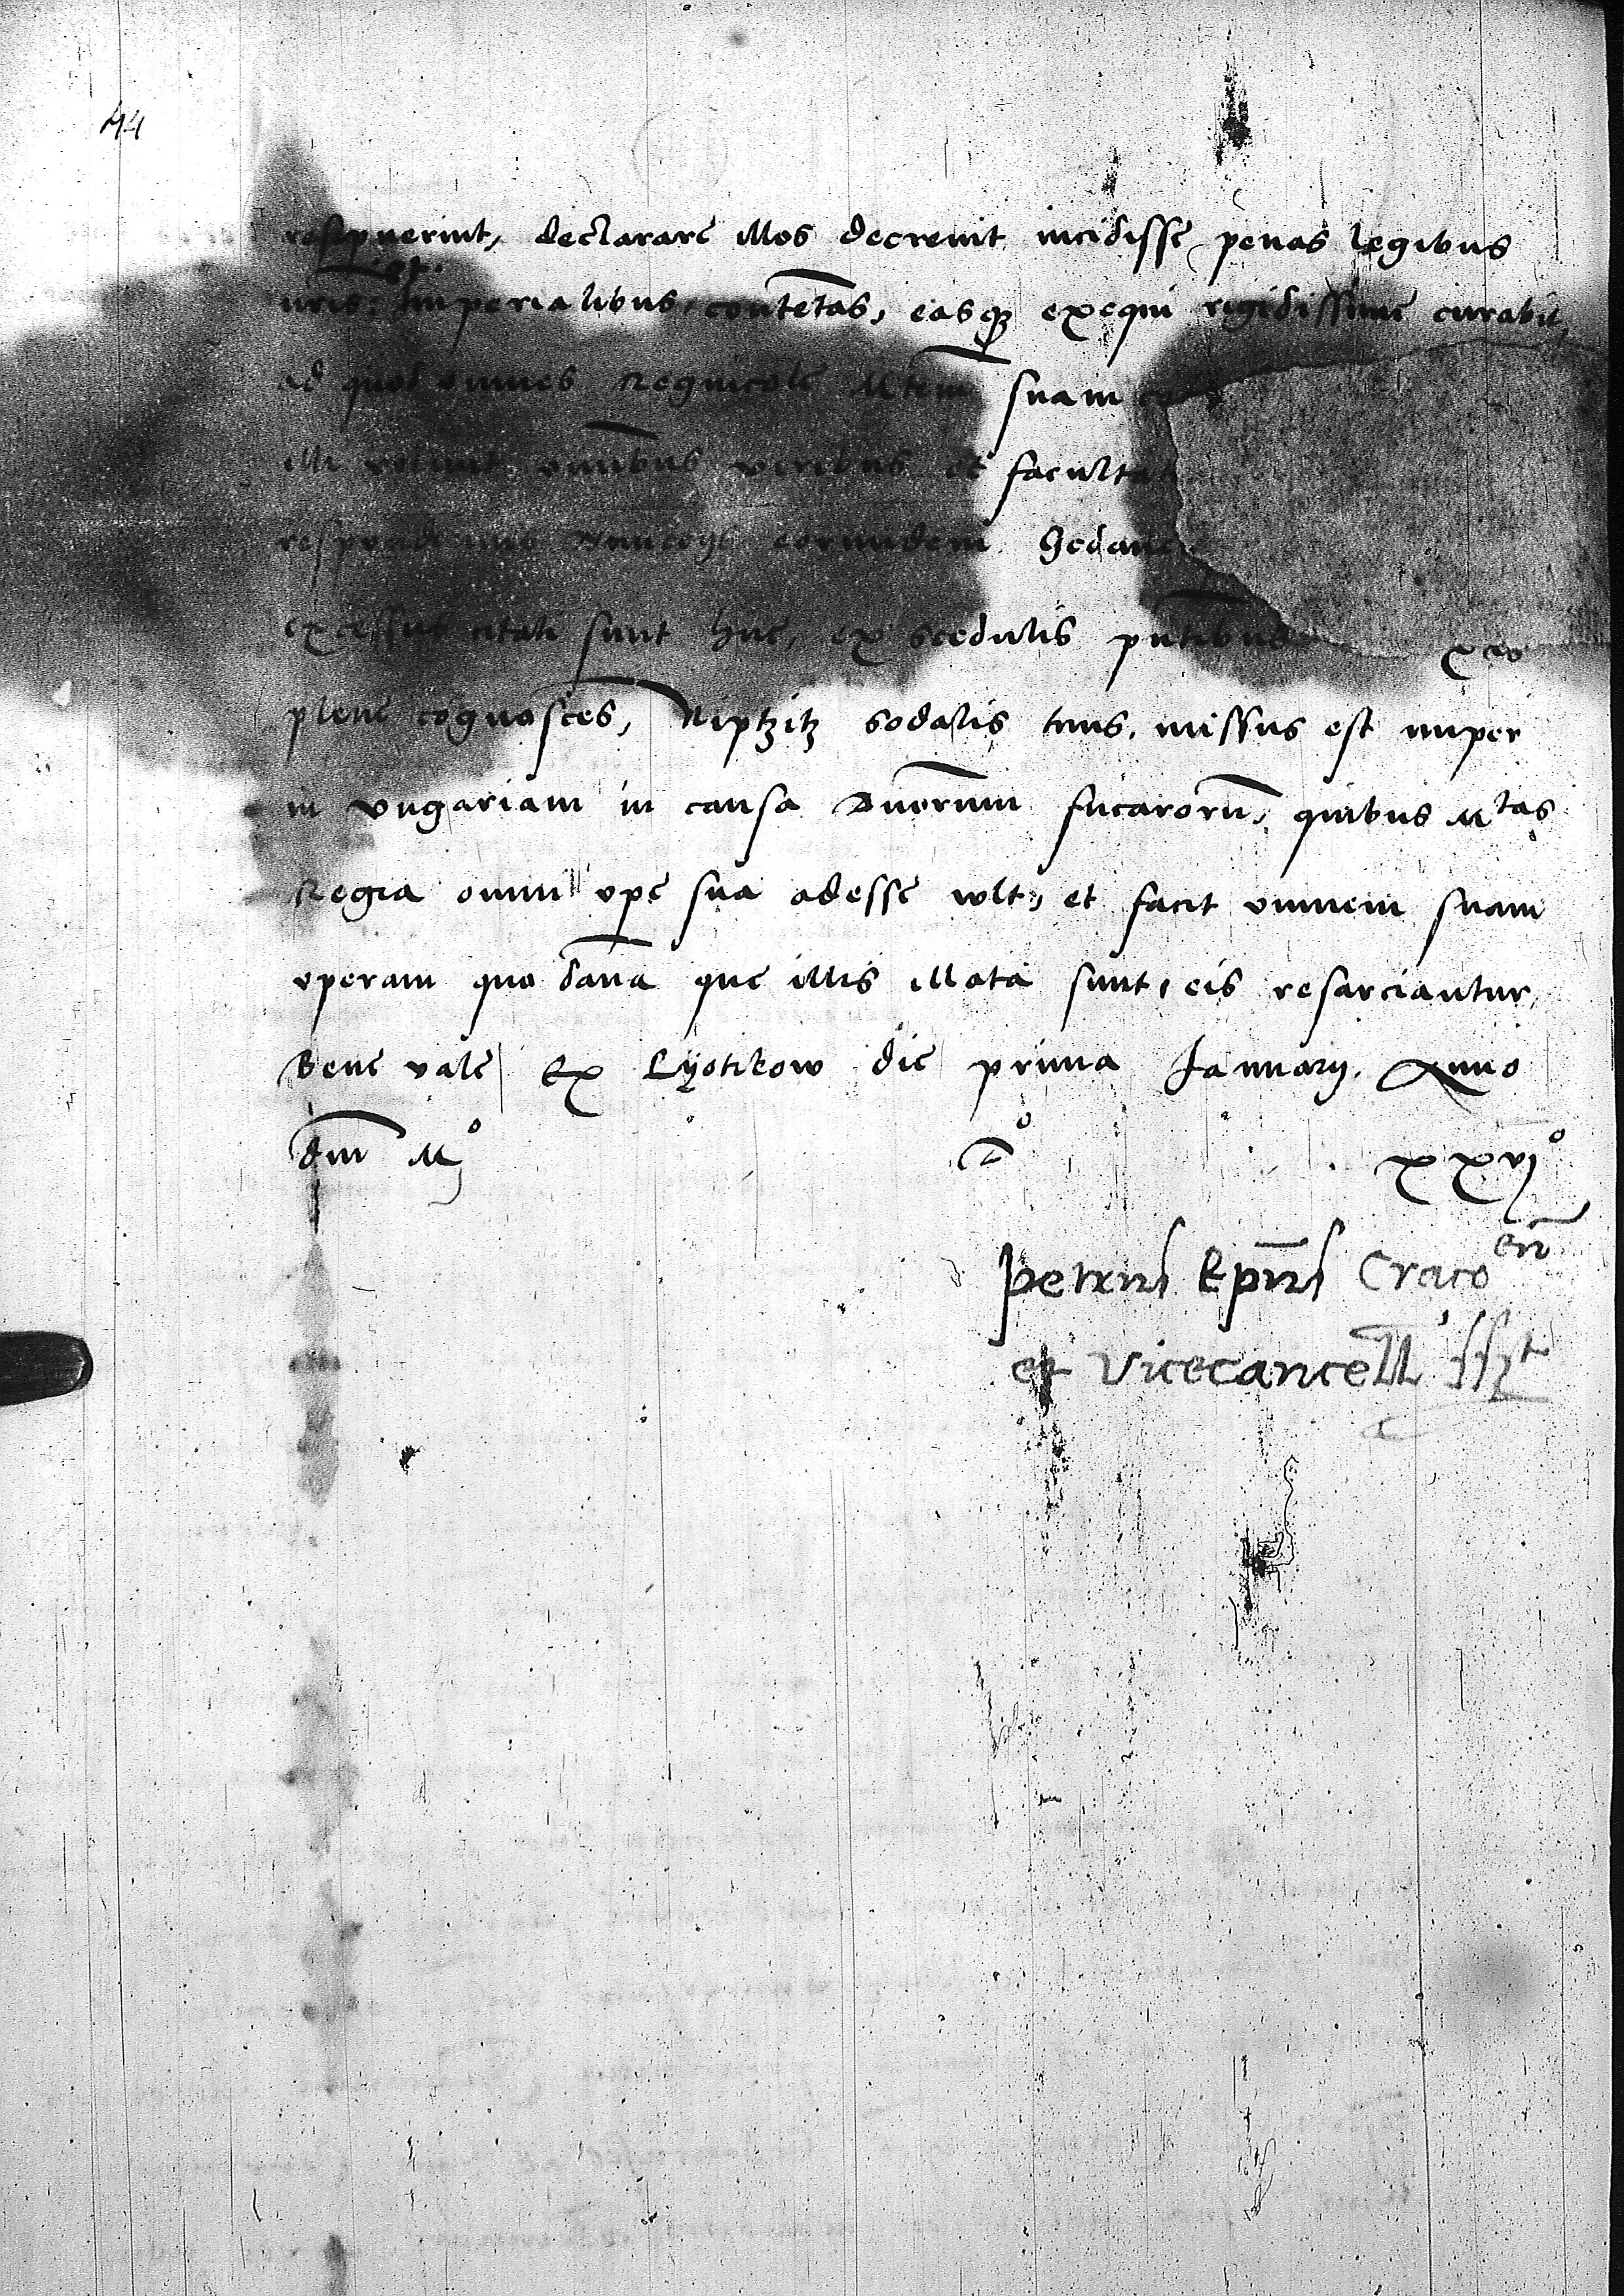 44
resipuerint, declarare illos decrevit incidisse penas legibus
et
nris: Imperialibus contentas, easq3 exequi rigidissime curabit,
ad quod omnes Regnicole Mtem suam
illi velint omnibus viribus et faculta
eorundem Gedan
excessus citati sunt huc, ex scedulis pntibus
plene cognosces, Niptzitz sodalis tuus, missus est nuper
in vngariam in causa Dnorum fucaroru, quibus Mtas
Regia omni ope sua adesse vult, et facit omnem suam
operam quo dana que illis illata sunt, eis resarciantur,
Bene vale Ex Pyotrkow die prima Januarij. Anno
dni Mo Do XXVJo
Petrus Epus Cracovien
et Vicecancell sszt